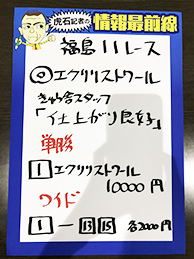 虎石記者の
情報最前線
福島11レース
◎エクリリストワール
きゅう舎スタッフ
「仕上がり良好」
単勝
1 エクリリストワール
10000円
ワイド
1－13 15 各2000円